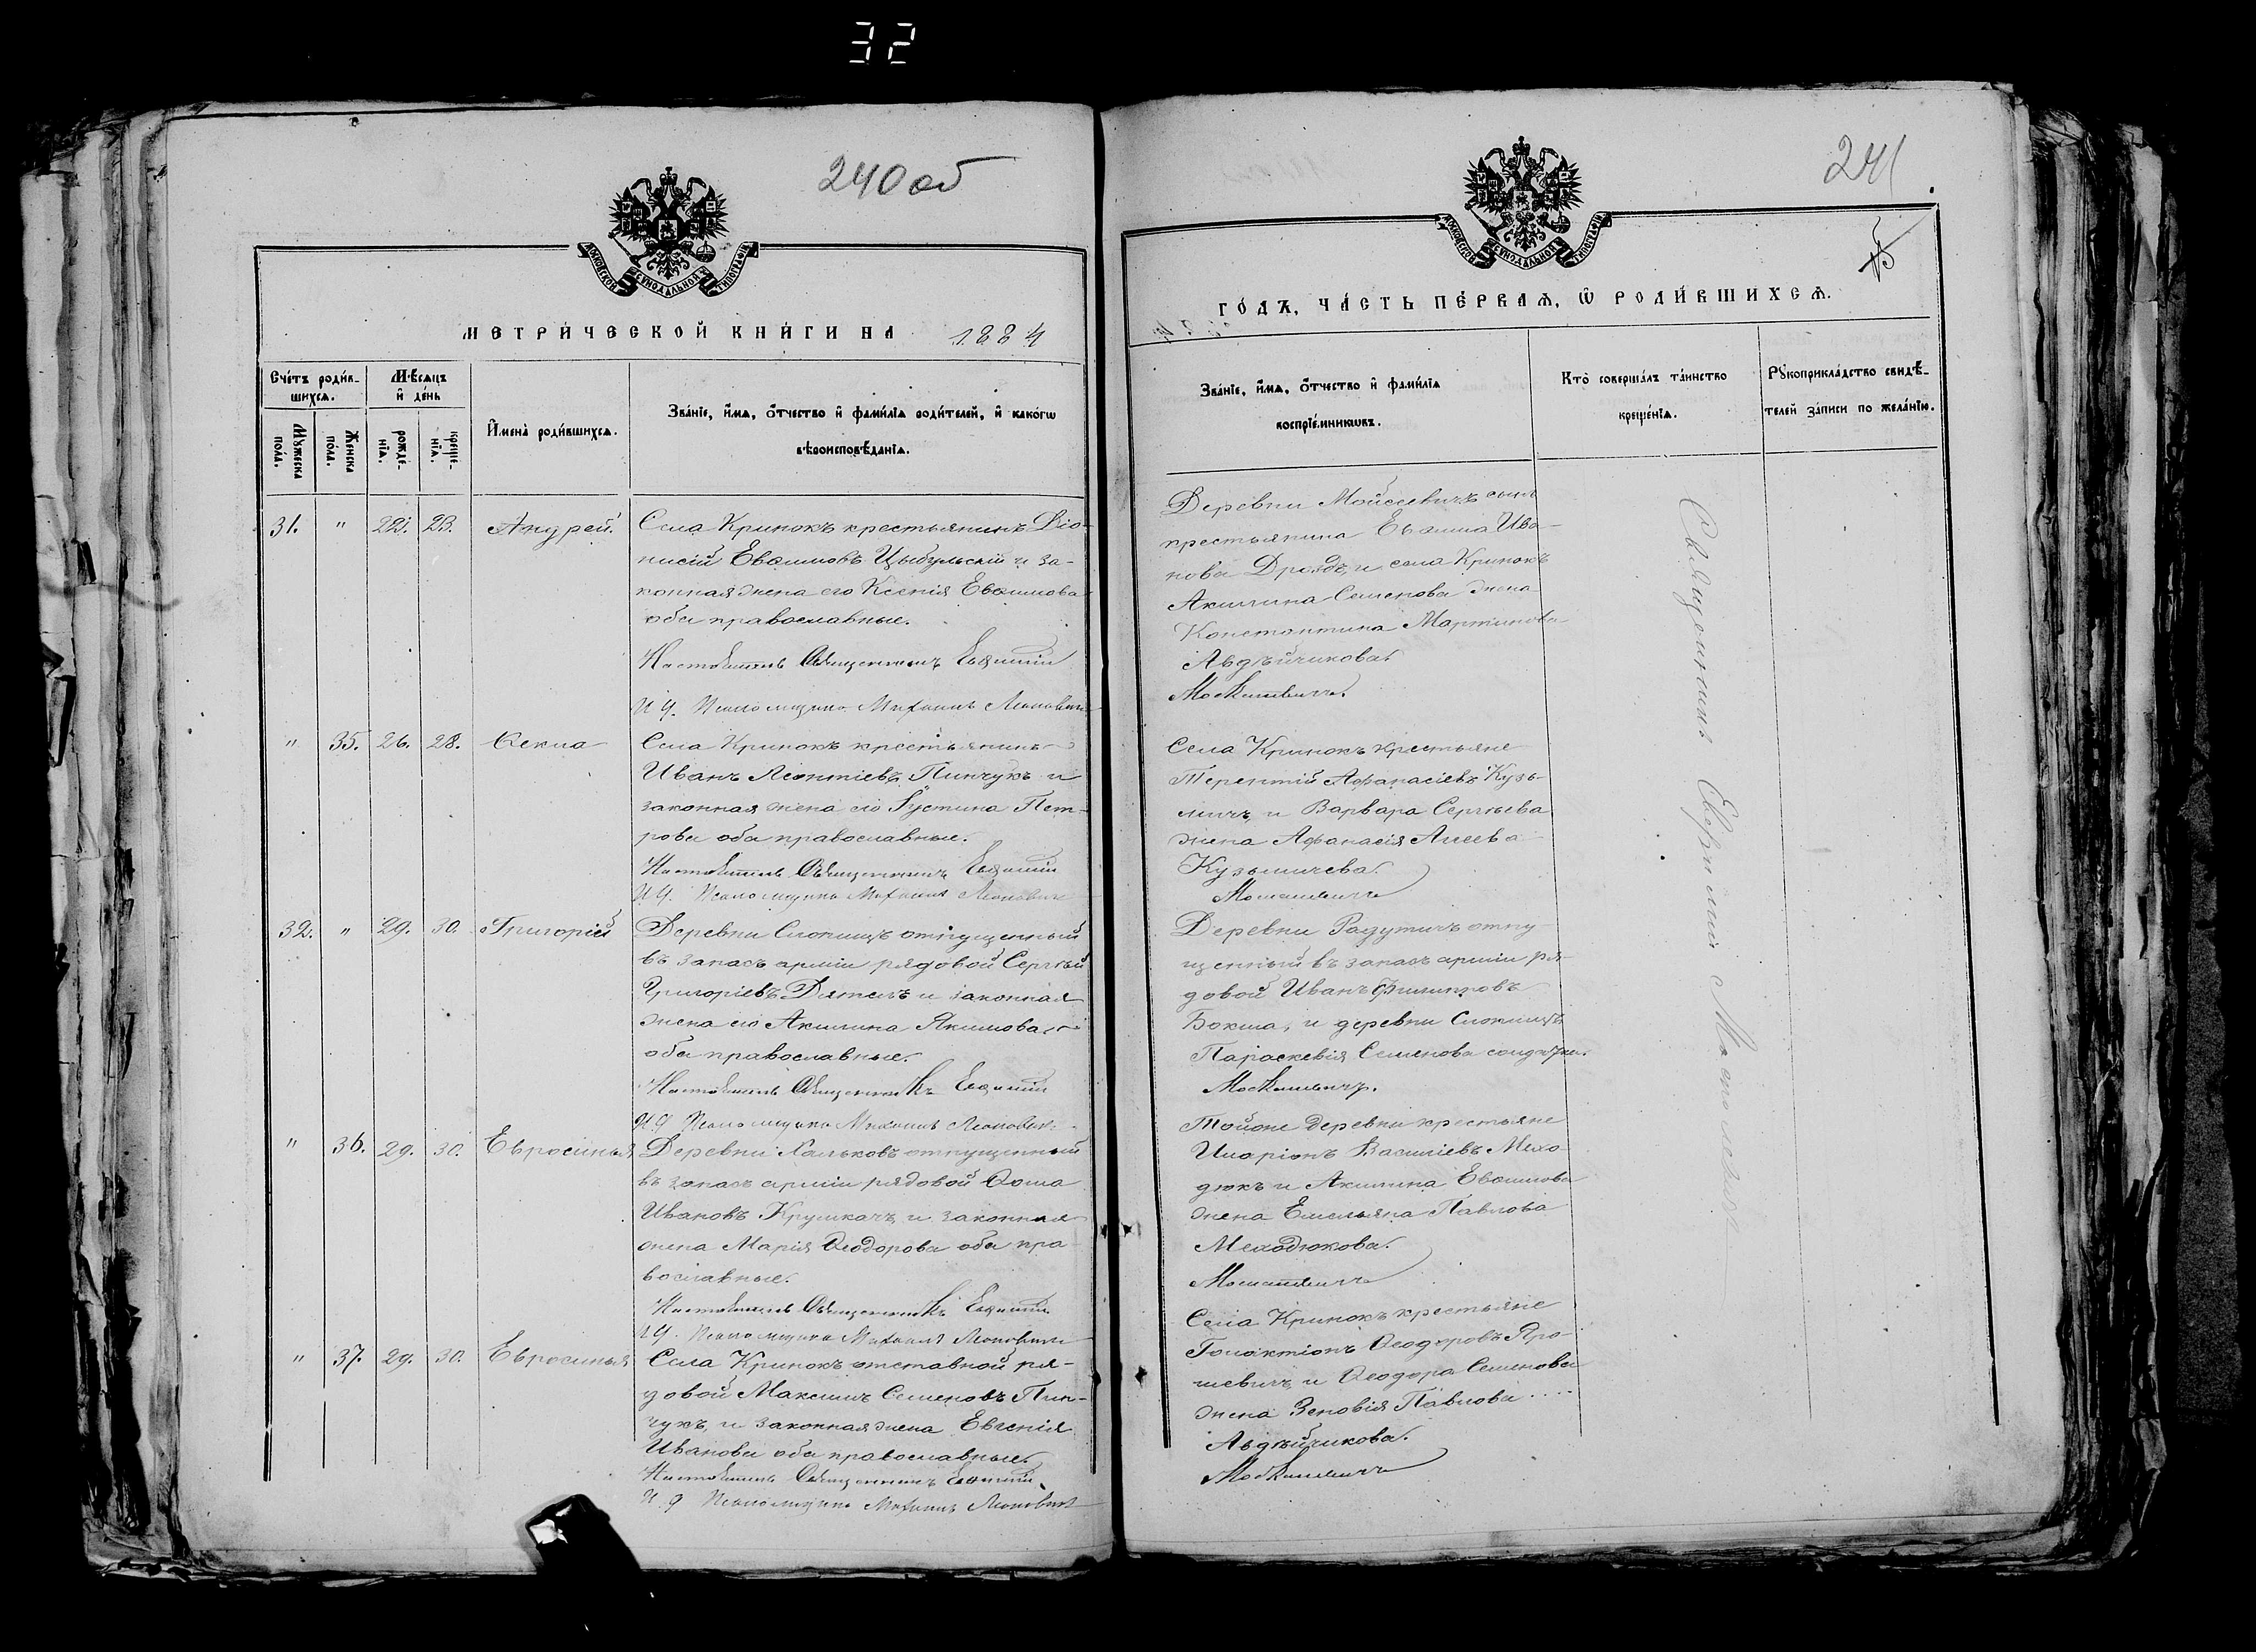 32
240 об
МОСКОВСКОЙ СѴНОДАЛЬНОЙ ТИПОГРАФІИ
МЕТРИ́ЧЕСКОЙ КНИ́ГИ НА 1884
Сче́тъ роди́в-
шихсѧ.
Мѣ́сѧцъ
и҆ де́нь
Мꙋ́жеска
по́ла.
Же́нска
по́ла.
рожде́-
нїѧ.
креще́-
нїѧ.
И҆мена̀ роди́вшихсѧ.
Зва́нїе, и҆́мѧ, ѻ҆́тчество и҆ фами́лїѧ роди́телей, и҆ како́гѡ
вѣроисповѣ́данїѧ.
31. " 22. 23. Андрей.
Села Кринокъ крестьянинъ Діо-
нисій Евѳимовъ Цыбульскій и за-
конная жена его Ксенія Евѳимова
оба православные.
Настоятель Священникъ Евѳимій
И. д. Псаломщика Михаилъ Леонович
" 35. 26. 28. Ѳекла
Села Кринокъ крестьянинъ
Иванъ Леонтіевъ Пинчукъ и
законная жена его Іустина Пет-
рова оба православные.
Настоятель Священникъ Евѳимій
И. д. Псаломщика Михаилъ Леонович
32. " 29. 30. Григорій
Деревни Слопищъ отпущенный
въ запасъ арміи рядовой Сергѣй
Григоріевъ Дятелъ и законная
жена его Акилина Якимова
оба православные.
Настоятель Священникъ Евѳимій
И. д. Псаломщика Михаилъ Леонович
" 36. 29. 30. Евросинья
Деревни Хальковъ отпущенный
въ запасъ арміи рядовой Ѳома
Ивановъ Крумкачъ и законная
жена Марія Ѳеодорова оба пра
вославные.
Настоятель Священникъ Евѳимій
И. д. Псаломщика Михаилъ Леонович
" 37. 29. 30. Евросинья
Села Кринокъ отставной ря-
довой Максимъ Семеновъ Пин-
чукъ, и законная жена Евгенія
Иванова оба православные.
Настоятель Священникъ Евѳимій
И. д. Псаломщика Михаилъ Леонович
241
МОСКОВСКОЙ СѴНОДАЛЬНОЙ ТИПОГРАФІИ
ГО́ДЪ, ЧА́СТЬ ПЕ́РВАѦ, Ѽ РОДИ́ВШИХСѦ.
Зва́нїе, и҆́мѧ, ѻ҆́тчество и҆ фами́лїѧ
воспрїе́мникѡвъ.
Кто̀ соверша́лъ та́инство
креще́нїѧ.
Рꙋкоприкла́дство свидѣ́-
телей за́писи по жела́нїю.
Деревни Мойсеевичъ сынъ
крестьянина Евѳима Ива-
нова Дроздъ, и села Кринокъ
Акилина Семенова жена
Константина Мартинова
Авдѣйчикова.
Мосткалевичъ.
Села Кринокъ крестьяне
Терентій Аѳанасіевъ Кузь-
мичъ, и Варвара Сергѣева
жена Аѳанасія Алеева
Кузьмичева.
Деревни Радутичъ отпу
щенный въ запасъ арміи ря-
довой Иванъ Филипповъ
Бокша, и деревни Слопищъ
Параскевія Семенова солдатка.
Тойже деревни крестьяне
Иларіонъ Василіевъ Мехо-
дюкъ и Акилина Евѳимова
жена Емельяна Павлова
Меходюкова.
Села Кринокъ крестьяне
Голактіонъ Ѳеодоровъ Яро-
шевичъ, и Ѳеодора Семенова
жена Зеновія Павлова
Авдѣйчикова.
Священникъ Евфимій